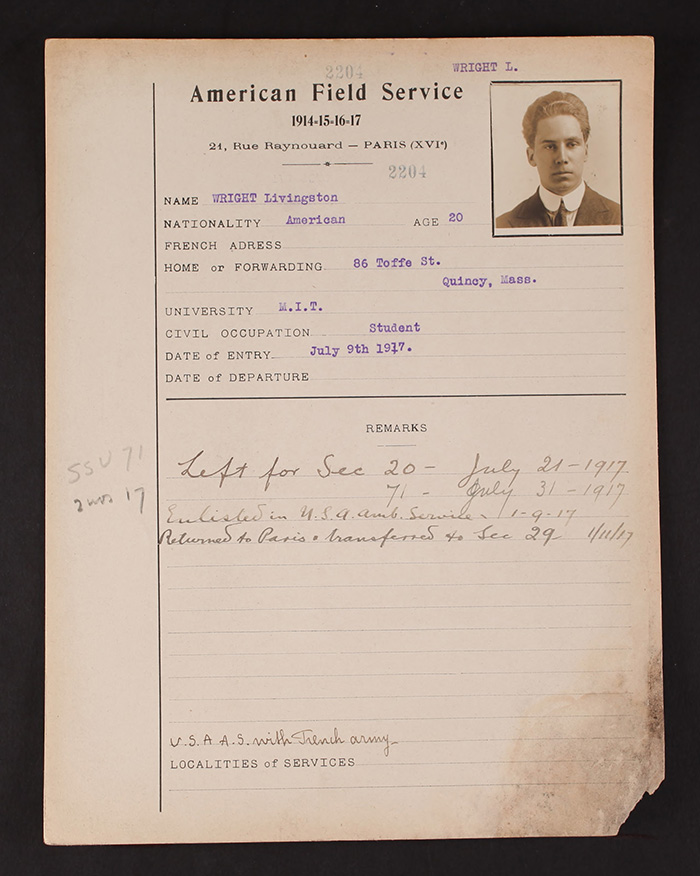 2204
WRIGHT L.
American Field Service
1914-15-16-17
21, Rue Raynouard — PARIS (XVIe)
2204
NAME WRIGHT Livingston
NATIONALITY American AGE 20
FRENCH ADRESS
HOME or FORWARDING 86 Toffe St.
Quincy, Mass.
UNIVERSITY M.I.T.
CIVIL OCCUPATION Student
DATE of ENTRY July 9th 1917.
DATE of DEPARTURE
REMARKS
Left for Sec 20 - July 21 - 1917
SSU 71
71 - July 31 - 1917
2 nov 17
Enlisted in U.S.A. amb. Service - 1-9-17
Returned to Paris & transferred to Sec 29 1/11/17
U.S.A.A.S. with French army
LOCALITIES of SERVICES